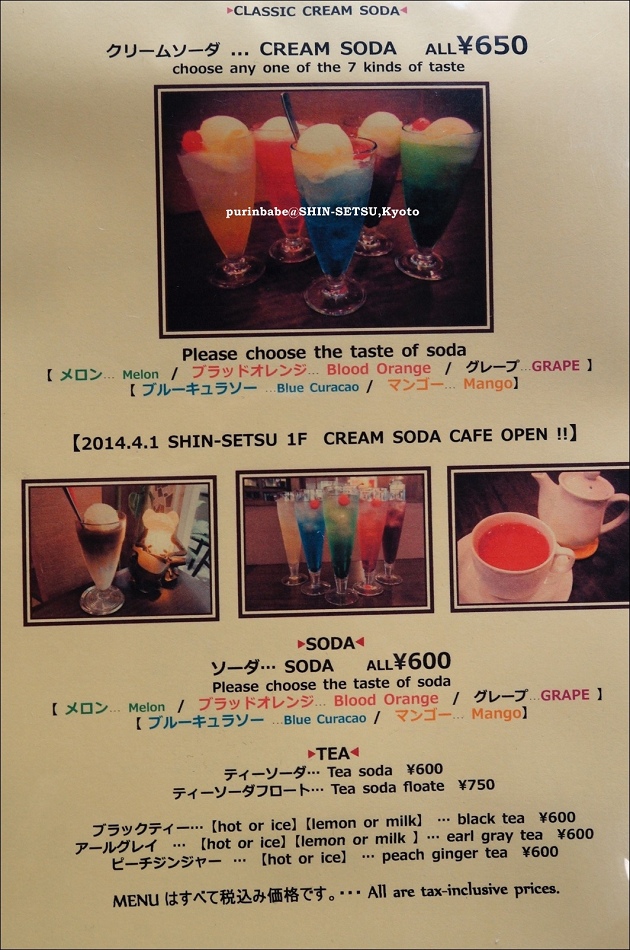 ▶CLASSIC CREAM SODA◀
クリームソーダ … CREAM SODA ALL¥650
choose any one of the 7 kinds of taste
purinbabe@SHIN-SETSU,Kyoto
Please choose the taste of soda
【 メロン… Melon / ブラッドオレンジ… Blood Orange / グレープ…GRAPE 】
【 ブルーキュラソー …Blue Curacao / マンゴー… Mango】
【2014.4.1 SHIN-SETSU 1F CREAM SODA CAFE OPEN !!】
▶SODA◀
ソーダ… SODA ALL¥600
Please choose the taste of soda
【 メロン… Melon / ブラッドオレンジ… Blood Orange / グレープ…GRAPE 】
【 ブルーキュラソー …Blue Curacao / マンゴー… Mango】
▶TEA◀
ティーソーダ… Tea soda ¥600
ティーソーダフロート… Tea soda floate ¥750
ブラックティー…【hot or ice】【lemon or milk】 … black tea ¥600
アールグレイ …【hot or ice】【lemon or milk 】… earl gray tea ¥600
ピーチジンジャー … 【hot or ice】 … peach ginger tea ¥600
MENU はすべて税込み価格です。・・・ All are tax-inclusive prices.